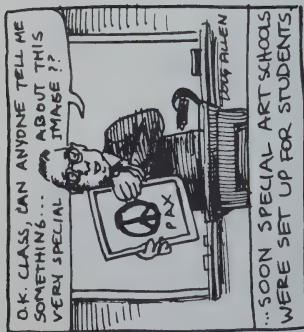 O.K. CLASS, CAN ANYONE TELL ME
SOMETHING... ABOUT THIS
VERY SPECIAL IMAGE??
PAX
DOUG ALLEN
...SOON SPECIAL ART SCHOOLS
WERE SET UP FOR STUDENTS.